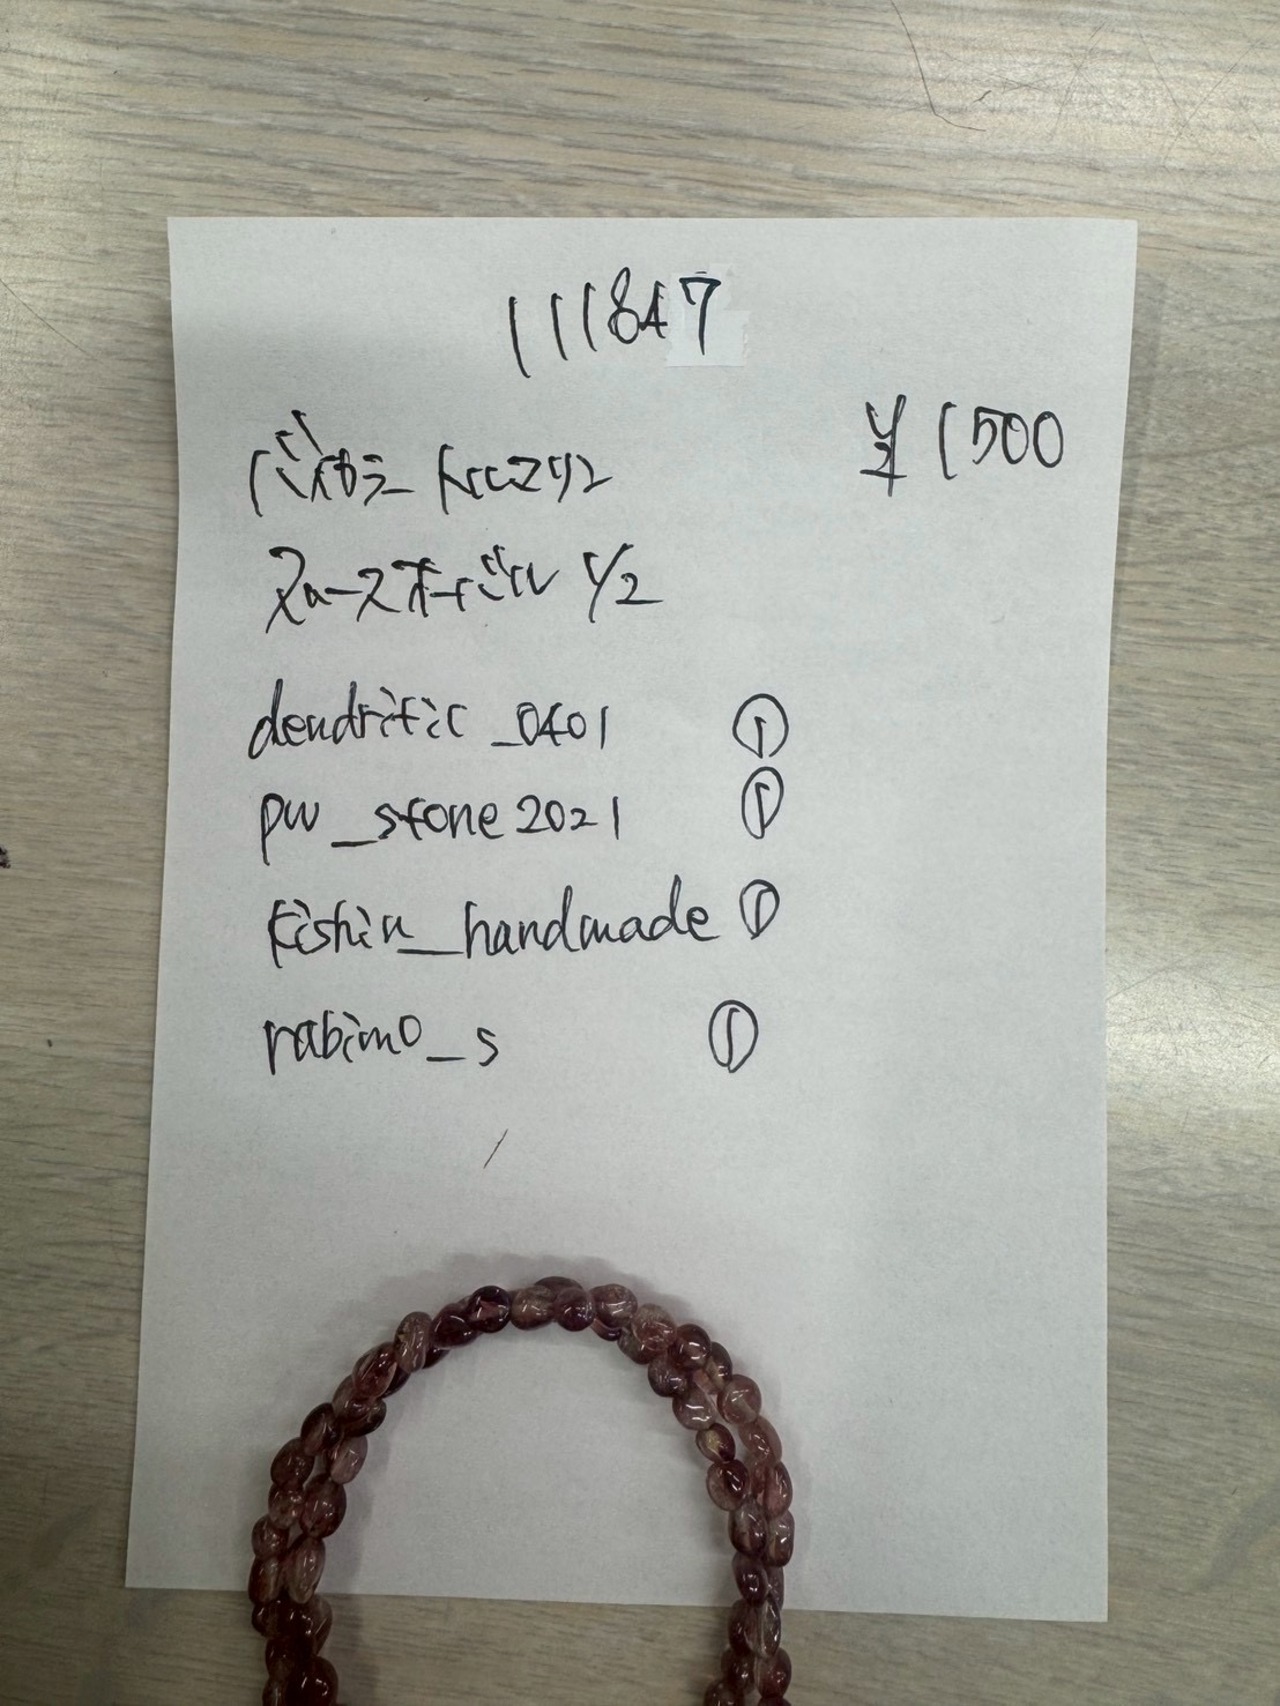 111847
¥1500
バイカラートルマリン
スムースオーバル 1/2
dendritic_0401 ①
pw_stone2021 ①
kishin_handmade ①
rabimo_s ①